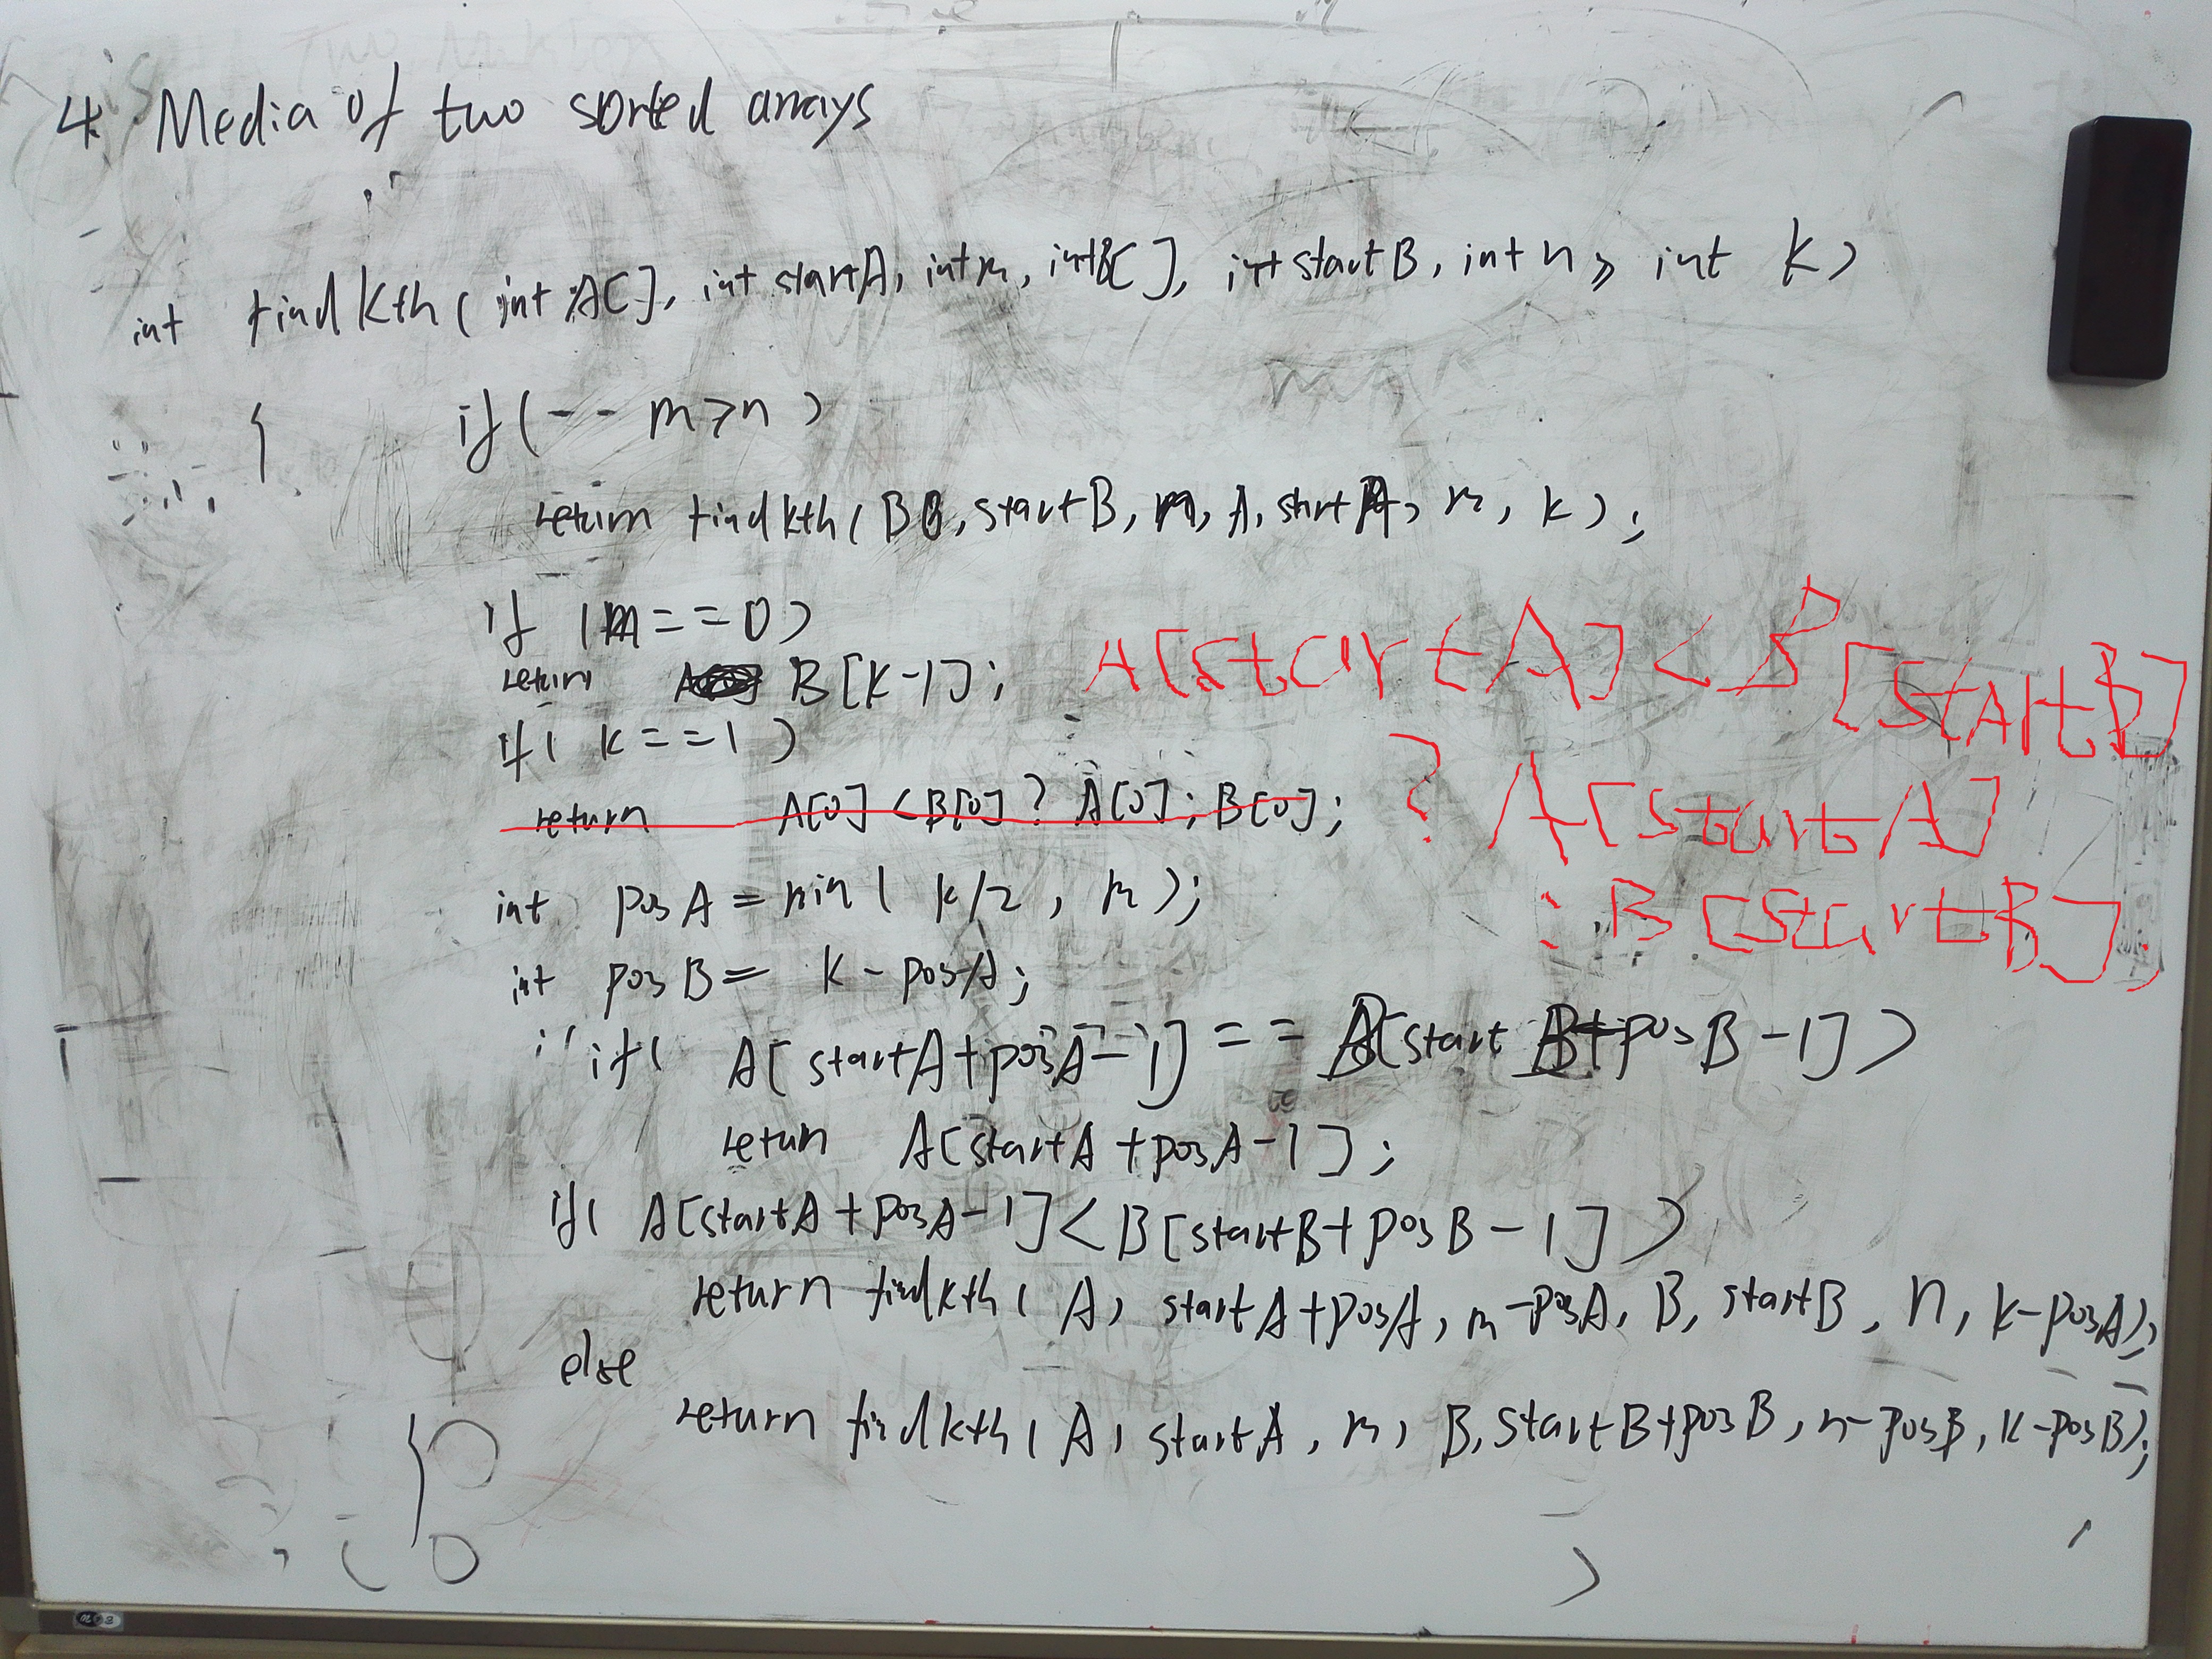 4. Media of two sorted arrays
int findkth(int A[], int startA, int m, int B[], int startB, int n, int k)
{ if(-- m>n)
return findkth(B, startB, n, A, startA, m, k);
if (m==0)
return B[k-1];
if( k==1 )
return A[0]<B[0]? A[0]; B[0];
A[startA]<B[startB]
? A[startA]
: B[startB]
int posA = min( k/2, m );
int posB = k-posA;
if( A[startA+posA-1] == B[startB+posB-1])
return A[startA+posA-1];
if( A[startA+posA-1]<B[startB+posB-1])
return findkth( A, startA+posA, m-posA, B, startB, n, k-posA);
else
return findkth( A, startA, m, B, startB+posB, n-posB, k-posB);
}